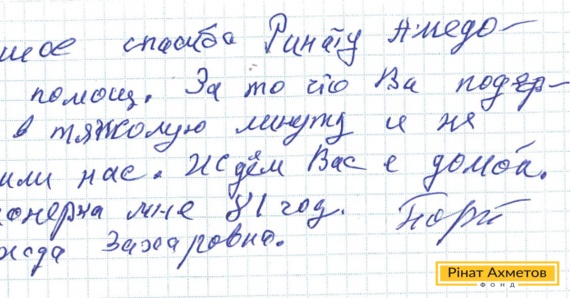 шое спасиба Ринату Ахмедо-
помощ. За то что Ва подер-
в тяжолую минуту и не
или нас. Ждём Вас с домой.
онерка мне 81 год.
жда Захаровна.
Рінат Ахметов
ФОНД